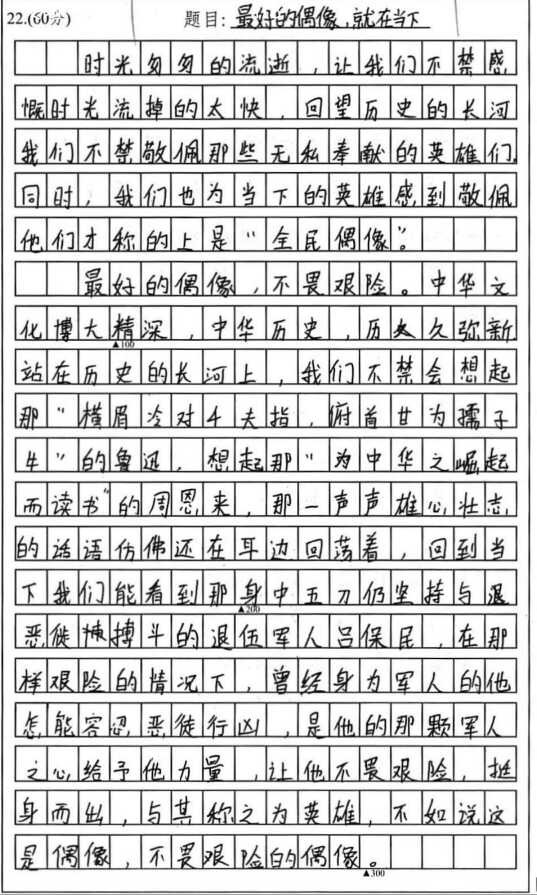 22.(60分) 题目: 最好的偶像,就在当下
时光匆匆的流逝,让我们不禁感
慨时光流掉的太快,回望历史的长河
我们不禁敬佩那些无私奉献的英雄们,
同时,我们也为当下的英雄感到敬佩
他们才称的上是“全民偶像”。
最好的偶像,不畏艰险。中华文
化博大精深,中华历史,历久弥新
▲100
站在历史的长河上,我们不禁会想起
那“横眉冷对千夫指,俯首甘为孺子
牛”的鲁迅,想起那“为中华之崛起
而读书”的周恩来,那一声声雄心壮志
的话语仿佛还在耳边回荡着,回到当
下我们能看到那身中五刀仍坚持与
▲200
恶徒搏斗的退伍军人吕保民,在那
样艰险的情况下,曾经身为军人的他
怎能容忍恶徒行凶,是他的那颗军人
之心给予他力量,让他不畏艰险,挺
身而出,与其称之为英雄,不如说这
是偶像,不畏艰险的偶像。
▲300